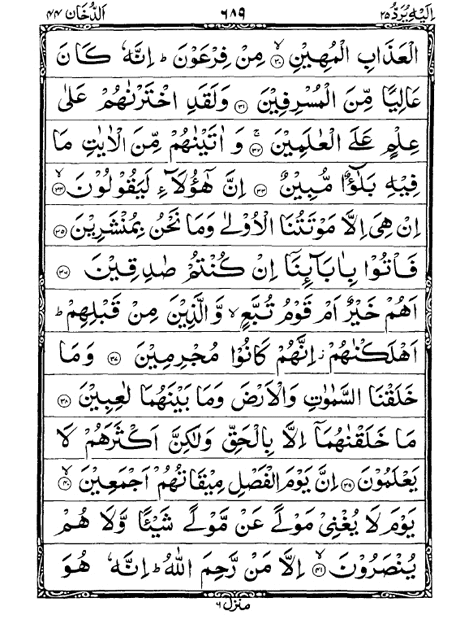 اِلَيْهِ يُرَدُّ ٢٥ ٦٨٩ اَلدُّخَان ٤٤
الْعَذَابِ الْمُهِيْنِ ۙ﴿٣٠﴾ مِنْ فِرْعَوْنَ ؕ اِنَّهٗ كَانَ
عَالِيًا مِّنَ الْمُسْرِفِيْنَ ﴿٣١﴾ وَلَقَدِ اخْتَرْنٰهُمْ عَلٰى
عِلْمٍ عَلَى الْعٰلَمِيْنَ ۚ﴿٣٢﴾ وَ اٰتَيْنٰهُمْ مِّنَ الْاٰيٰتِ مَا
فِيْهِ بَلٰٓؤٌا مُّبِيْنٌ ﴿٣٣﴾ اِنَّ هٰٓؤُلَآءِ لَيَقُوْلُوْنَ ۙ﴿٣٤﴾
اِنْ هِىَ اِلَّا مَوْتَتُنَا الْاُوْلٰى وَمَا نَحْنُ بِمُنْشَرِيْنَ ﴿٣٥﴾
فَاْتُوْا بِاٰبَآئِنَاۤ اِنْ كُنْتُمْ صٰدِقِيْنَ ﴿٣٦﴾
اَهُمْ خَيْرٌ اَمْ قَوْمُ تُبَّعٍ ۙ وَّالَّذِيْنَ مِنْ قَبْلِهِمْ ؕ
اَهْلَكْنٰهُمْ ؗ اِنَّهُمْ كَانُوْا مُجْرِمِيْنَ ﴿٣٧﴾ وَمَا
خَلَقْنَا السَّمٰوٰتِ وَالْاَرْضَ وَمَا بَيْنَهُمَا لٰعِبِيْنَ ﴿٣٨﴾
مَا خَلَقْنٰهُمَاۤ اِلَّا بِالْحَقِّ وَلٰكِنَّ اَكْثَرَهُمْ لَا
يَعْلَمُوْنَ ﴿٣٩﴾ اِنَّ يَوْمَ الْفَصْلِ مِيْقَاتُهُمْ اَجْمَعِيْنَ ۙ﴿٤٠﴾
يَوْمَ لَا يُغْنِىْ مَوْلًى عَنْ مَّوْلًى شَيْـًٔا وَّلَا هُمْ
يُنْصَرُوْنَ ۙ﴿٤١﴾ اِلَّا مَنْ رَّحِمَ اللّٰهُ ؕ اِنَّهٗ هُوَ
منزل ٦